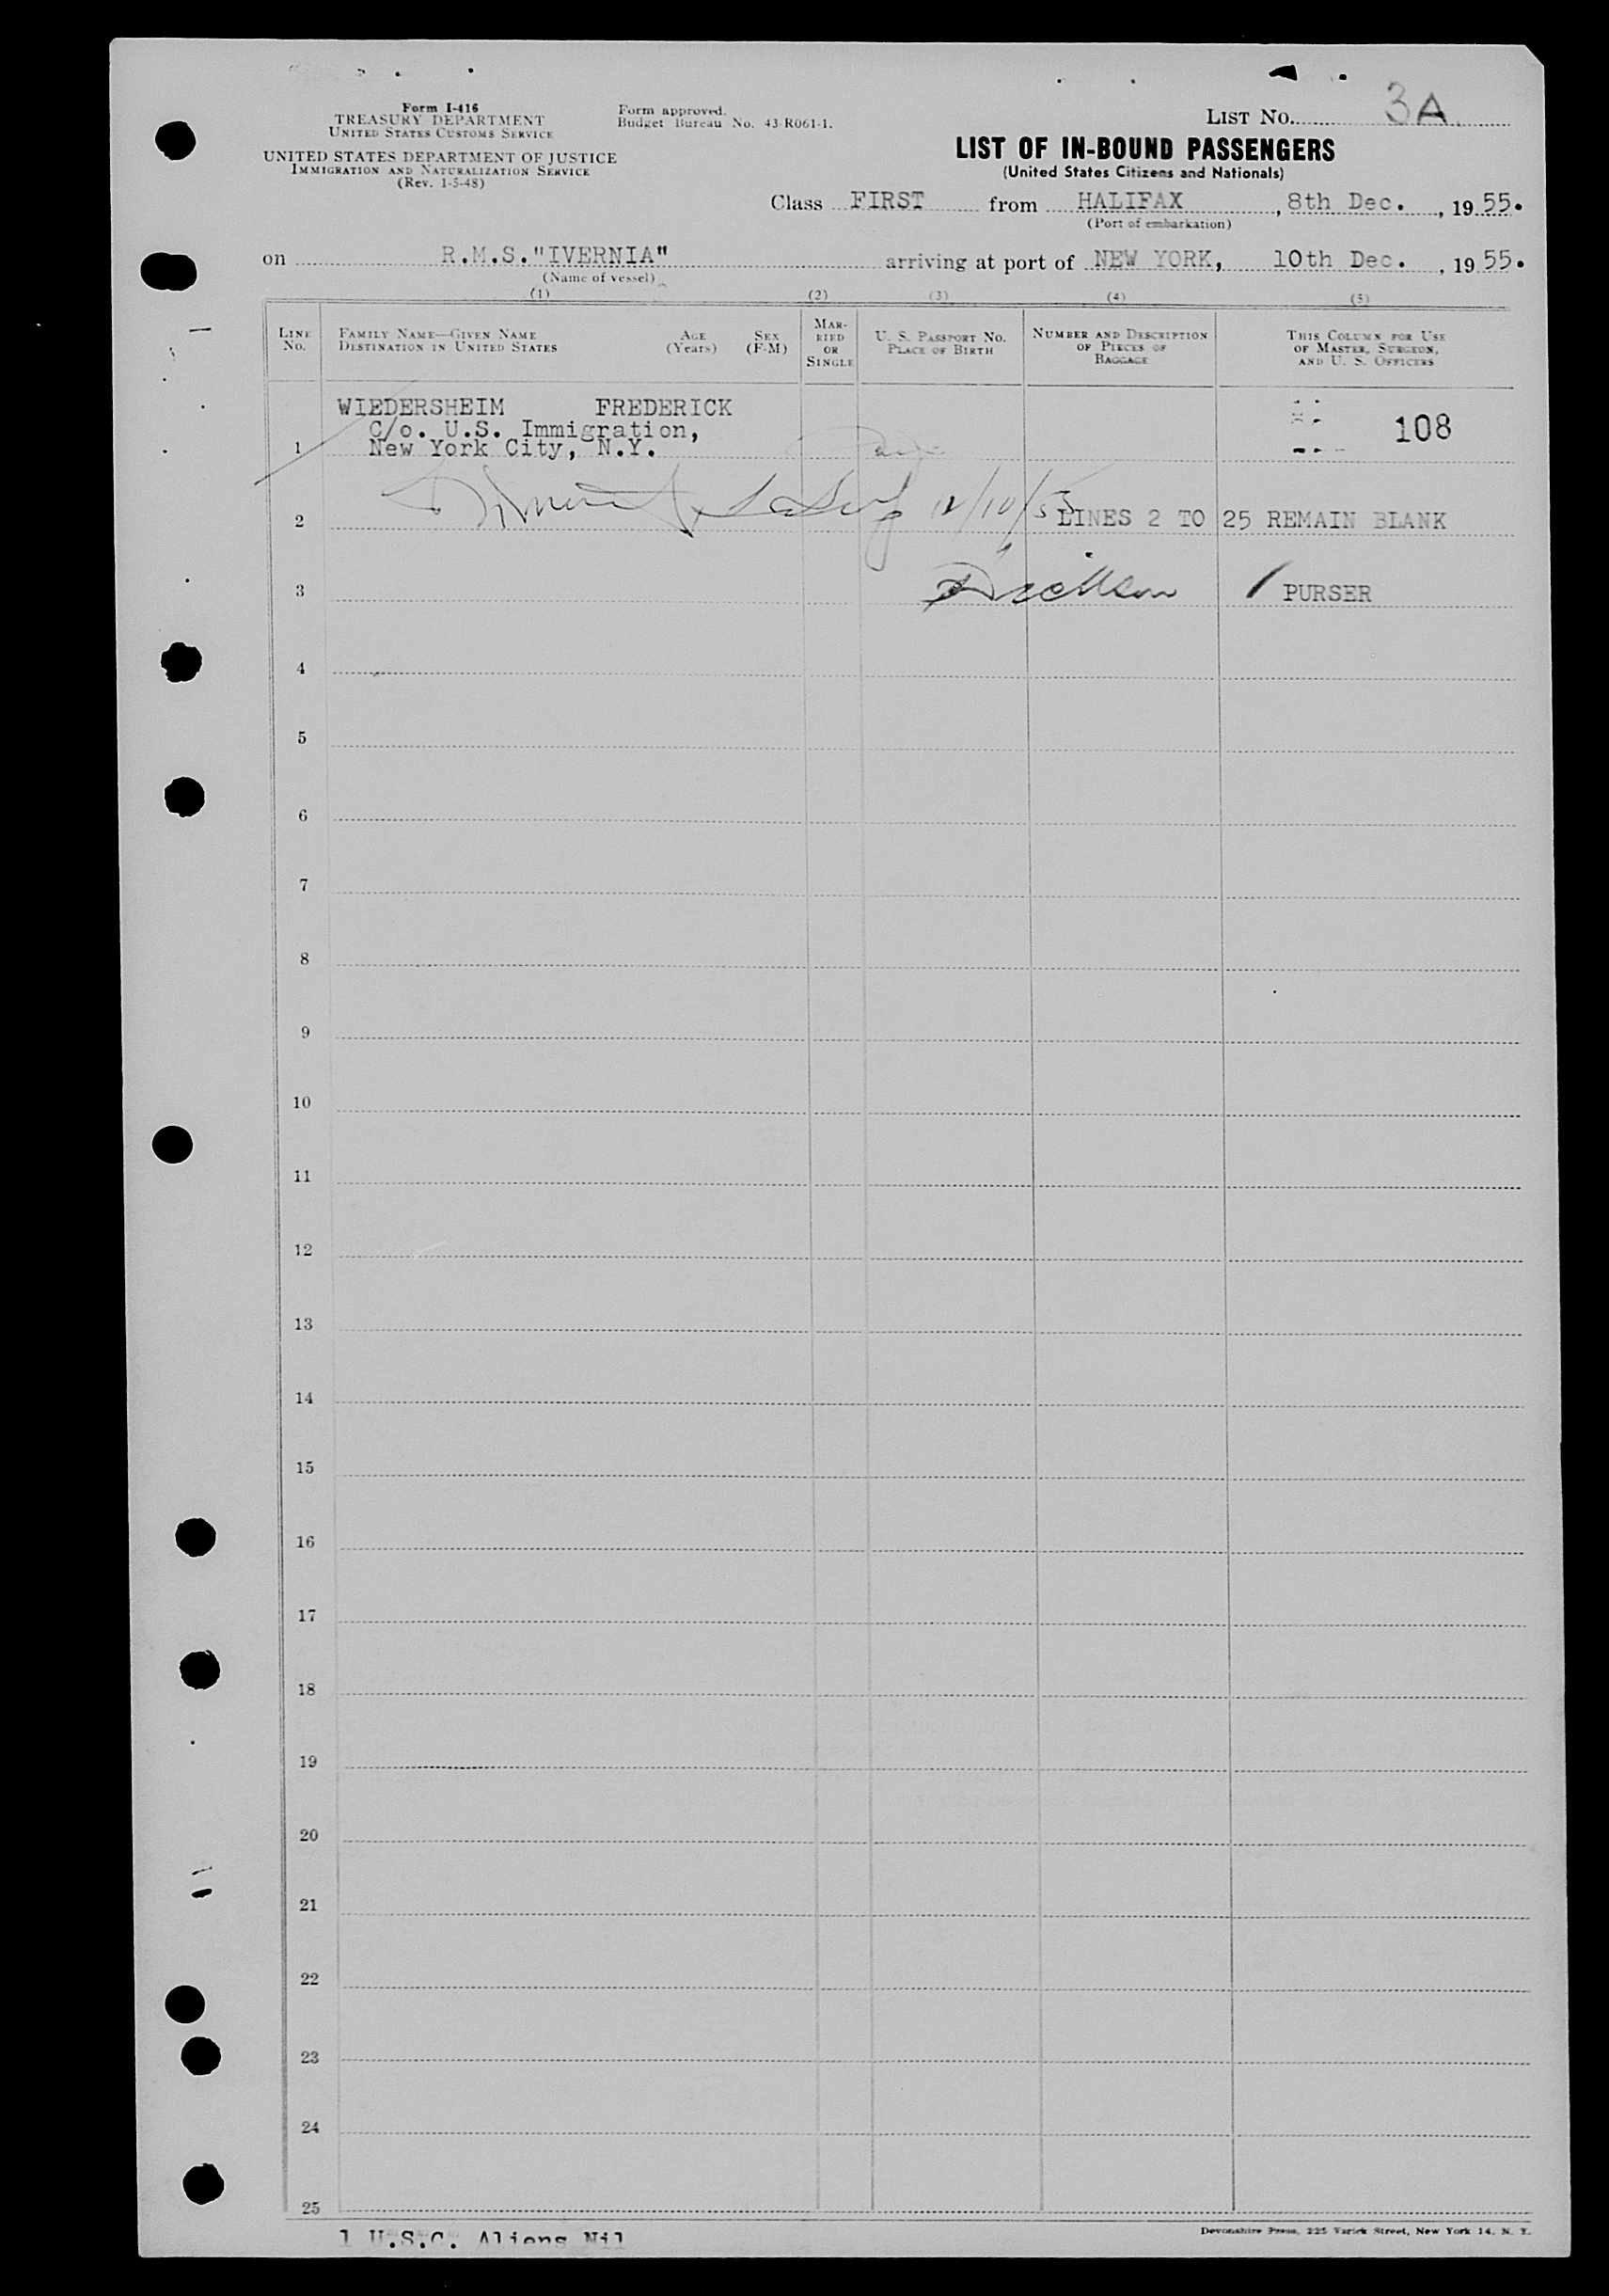 Form I-416
TREASURY DEPARTMENT
UNITED STATES CUSTOMS SERVICE
UNITED STATES DEPARTMENT OF JUSTICE
IMMIGRATION AND NATURALIZATION SERVICE
(Rev. 1-5-48)
Form approved.
Budget Bureau No. 43-R061-1.
LIST No. 3A
LIST OF IN-BOUND PASSENGERS
(United States Citizens and Nationals)
Class FIRST from HALIFAX, 8th Dec., 1955.
(Port of embarkation)
on R.M.S."IVERNIA" arriving at port of NEW YORK, 10th Dec., 1955.
(Name of vessel)
(1) (2) (3) (4) (5)
LINE No.
FAMILY NAME—GIVEN NAME
DESTINATION IN UNITED STATES
AGE (Years)
SEX (F-M)
MARRIED OR SINGLE
U. S. PASSPORT No.
PLACE OF BIRTH
NUMBER AND DESCRIPTION OF PIECES OF BAGGAGE
THIS COLUMN FOR USE OF MASTER, SURGEON, AND U. S. OFFICERS
WIEDERSHEIM FREDERICK
C/o. U.S. Immigration,
1 New York City, N.Y.
108
12/10/55
2 LINES 2 TO 25 REMAIN BLANK
3 PURSER
4
5
6
7
8
9
10
11
12
13
14
15
16
17
18
19
20
21
22
23
24
25
1 U.S.C. Aliens Nil
Devonshire Press, 225 Varick Street, New York 14, N. Y.